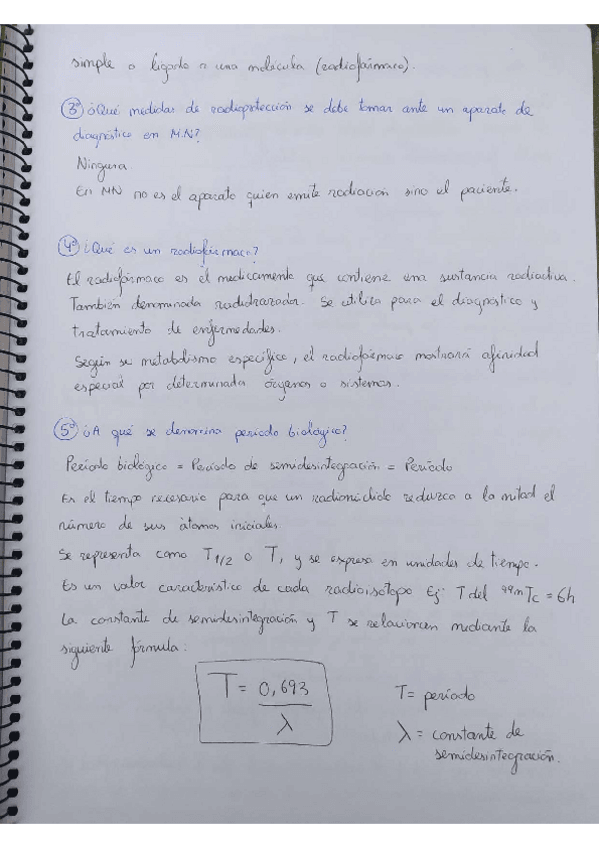 simple o ligado a una molécula (radiofármaco).
3º ¿Qué medidas de radioprotección se debe tomar ante un aparato de
diagnóstico en M.N?
Ninguna
En MN no es el aparato quien emite radiación sino el paciente.
4º ¿Qué es un radiofármaco?
El radiofármaco es el medicamento que contiene una sustancia radiactiva.
También denominada radiotrazador. Se utiliza para el diagnóstico y
tratamiento de enfermedades.
Según su metabolismo específico, el radiofármaco mostrará afinidad
especial por determinada órganos o sistemas.
5º ¿A qué se denomina período biológico?
Período biológico = Período de semidesintegración = Período
Es el tiempo necesario para que un radionúclido reduzca a la mitad el
número de sus átomos iniciales.
Se representa como T1/2 o T, y se expresa en unidades de tiempo.
Es un valor característico de cada radioisótopo Ej: T del 99mTc = 6h
La constante de semidesintegración y T se relacionan mediante la
siguiente fórmula:
T = 0,693 / λ
T = período
λ = constante de
semidesintegración.